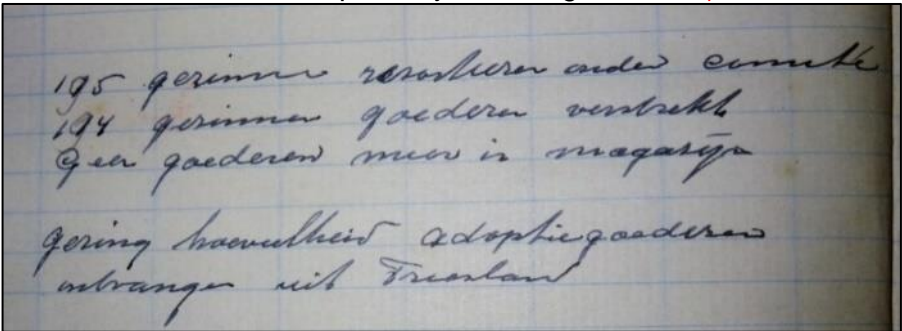 195 gezinnen ressorteren onder comité
194 gezinnen goederen verstrekt
Geen goederen meer in magazijn
gering hoeveelheid adoptiegoederen
ontvangen uit Friesland